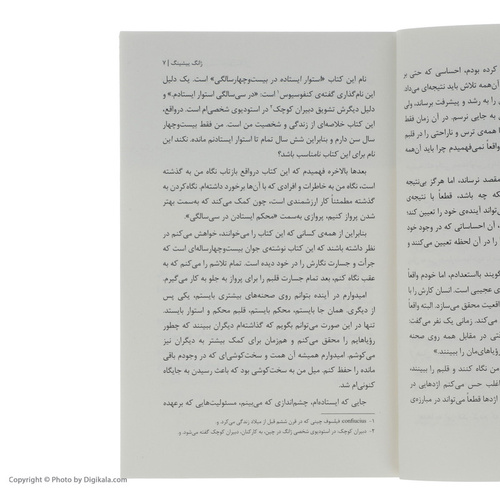 ژانگ بیشینگ | ۷
نام این کتاب «استوار ایستاده در بیست‌وچهارسالگی» است. یک دلیل
این نام‌گذاری گفته‌ی کنفوسیوس۱ است: «در سی‌سالگی استوار ایستادم.» و
دلیل دیگرش تشویق دبیران کوچک۲ در استودیوی شخصی‌ام است. درواقع،
این کتاب خلاصه‌ای از زندگی و شخصیت من است. من فقط بیست‌وچهار
سال سن دارم و بنابراین شش سال تمام تا استوار ایستادنم مانده. نکند این
نام برای این کتاب نامناسب باشد؟
بعدها بالاخره فهمیدم که این کتاب درواقع بازتاب نگاه من به گذشته
است، نگاه من به خاطرات و افرادی که با آن‌ها برخورد داشته‌ام. نگاه‌کردن به
گذشته مطمئناً کار ارزشمندی است، چون کمک می‌کند که به‌سمت بهتر
شدن پرواز کنیم، پروازی به‌سمت «محکم ایستادن در سی‌سالگی».
بنابراین از همه‌ی کسانی که این کتاب را می‌خوانند، خواهش می‌کنم در
نظر داشته باشند که این کتاب نوشته‌ی جوان بیست‌وچهارساله‌ای است که
جرأت و جسارت نگارش را در خود دیده است. تمام تلاشم را می‌کنم که به
عقب نگاه کنم، بعد تمام جسارت قلبم را برای پرواز به جلو به کار می‌گیرم.
امیدوارم در آینده بتوانم روی صحنه‌های بیشتری بایستم، یکی پس
از دیگری. همان جا بایستم، محکم بایستم، قلبم محکم و استوار بایستد.
تنها در این صورت می‌توانم بگویم که گذاشته‌ام دیگران ببینند که چطور
رؤیاهایم را محقق می‌کنم و هم‌زمان برای کمک بیشتر به دیگران نیز
می‌کوشم. امیدوارم همیشه آن همت و سخت‌کوشی‌ای که در وجودم باقی
مانده را حفظ کنم. میل من به سخت‌کوشی بود که باعث رسیدن به جایگاه
کنونی‌ام شد.
جایی که ایستاده‌ام، چشم‌اندازی که می‌بینم، مسئولیت‌هایی که برعهده
۱- confucius فیلسوف چینی که در قرن ششم قبل از میلاد زندگی می‌کرد. و.
۲- دبیران کوچک، در استودیوی شخصی ژانگ در چین، به کارکنان، دبیران کوچک گفته می‌شود. و.
کرده بودم، احساسی که حتی بر
آن‌همه تلاش باید نتیجه‌ای می‌داد
را به رشد و پیشرفت برساند، ولی
به جایی نرسم. در آن زمان فقط
همه‌ی ترس و ناراحتی را در قلبم
واقعاً نمی‌فهمیدم چرا باید آن‌همه
مقصد نرساند، اما هرگز بی‌نتیجه
که چه باشد، قطعاً با نتیجه‌ی
تواند آینده‌ی خود را تعیین کند؛
آن احساساتی که در وجود خود
را در آن لحظه تعیین می‌کنند و
گویند بااستعدادم، اما خودم واقعاً
عجیبی است. انسان کارش را با
واقعیت محقق می‌سازد. البته واقعاً
می‌کند. زمانی یک نفر می‌گفت:
در مقابل همه روی صحنه
رؤیاهای‌مان را ببینند.»
من نگاه کنند و قلبم را ببینند،
اغلب حس می‌کنم اژدهایی در
اژدها قطعاً می‌تواند در مبارزه‌ی
Copyright © Photo by Digikala.com